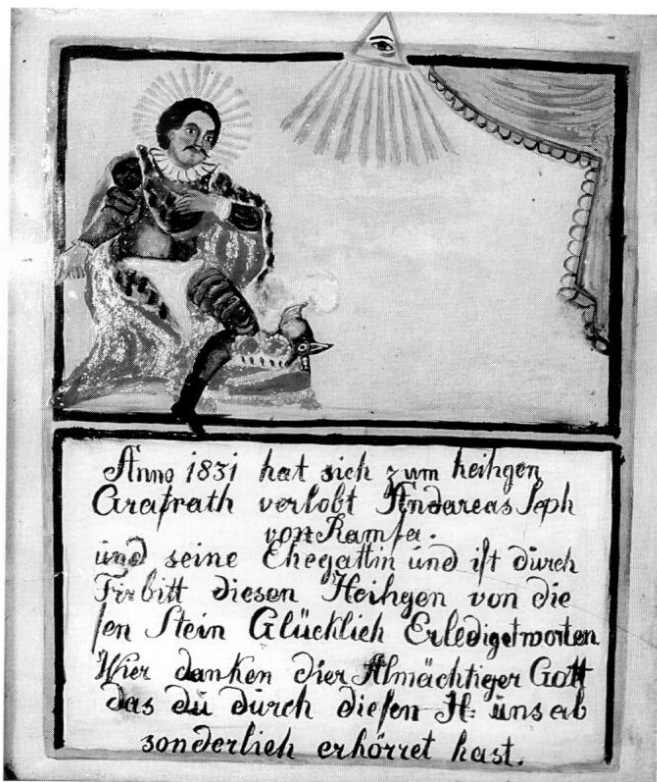 Anno 1831 hat sich zum heiligen
Grafrath verlobt Andareas Seph
von Ramsa.
und seine Ehegattin und ist durch
Firbitt diesen Heiligen von die
sen Stein Glücklich Erledigetworten
Wier danken dier Almächtiger Gott
das du durch diesen H: uns ab
sonderlich erhörret hast.